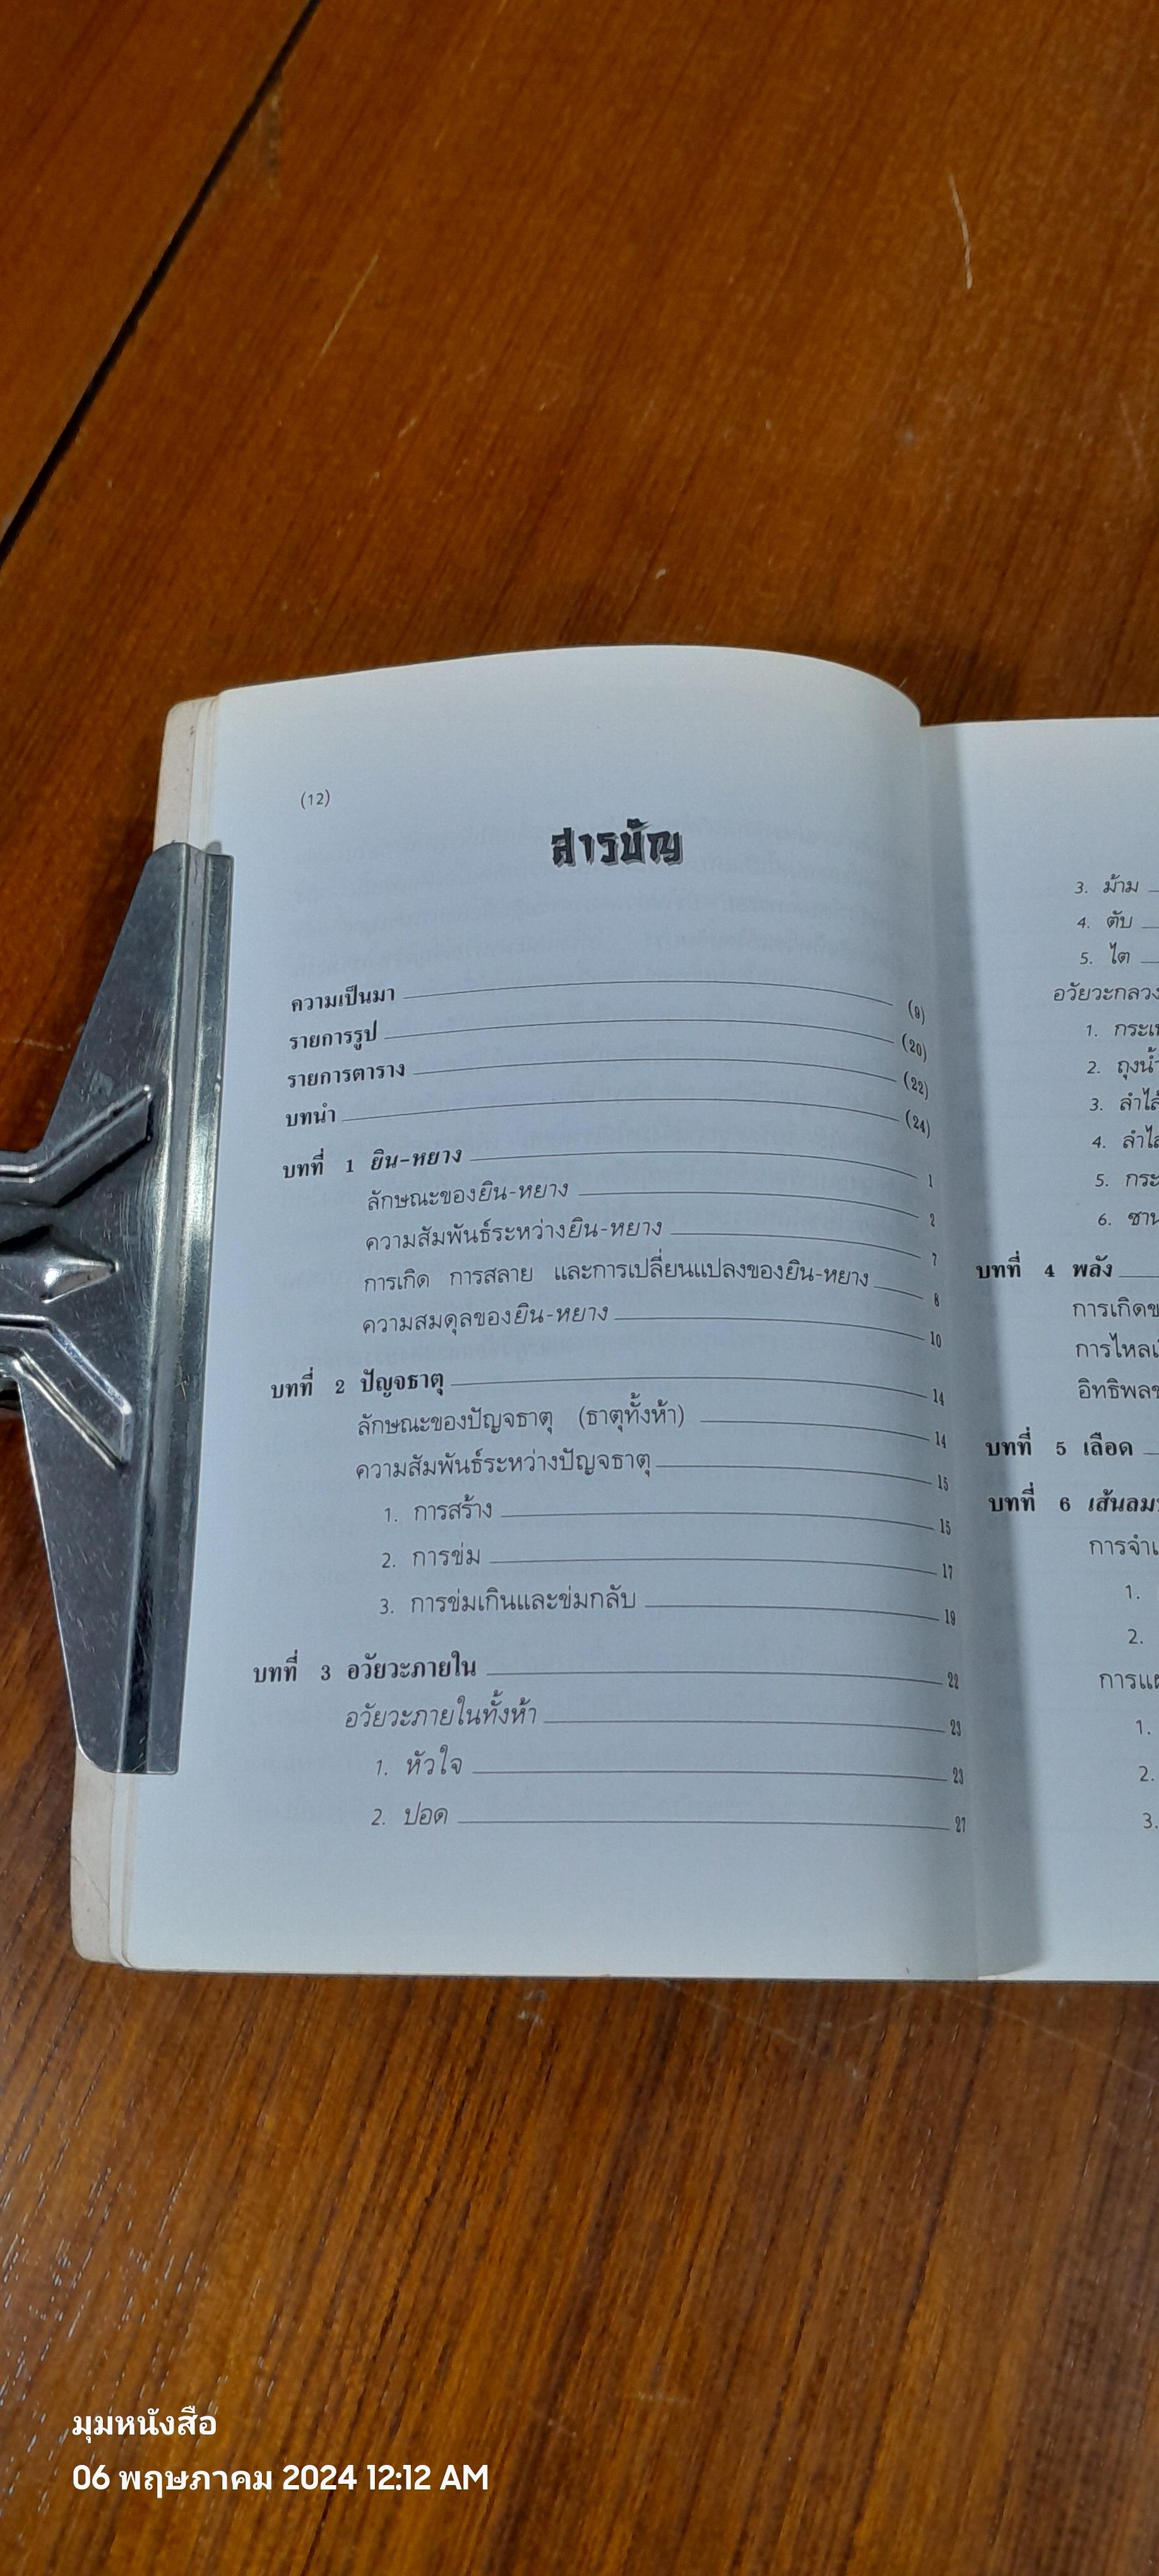 (12)
สารบัญ
ความเป็นมา (9)
รายการรูป (20)
รายการตาราง (22)
บทนำ (24)
บทที่ 1 ยิน-หยาง 1
ลักษณะของยิน-หยาง 2
ความสัมพันธ์ระหว่างยิน-หยาง 7
การเกิด การสลาย และการเปลี่ยนแปลงของยิน-หยาง 8
ความสมดุลของยิน-หยาง 10
บทที่ 2 ปัญจธาตุ 14
ลักษณะของปัญจธาตุ (ธาตุทั้งห้า) 14
ความสัมพันธ์ระหว่างปัญจธาตุ 15
1. การสร้าง 15
2. การข่ม 17
3. การข่มเกินและข่มกลับ 19
บทที่ 3 อวัยวะภายใน 22
อวัยวะภายในทั้งห้า 23
1. หัวใจ 23
2. ปอด 27
3. ม้าม
4. ตับ
5. ไต
อวัยวะกลวง
1.
2. ถุงน้ำ
3.
4.
5.
6.
บทที่ 4 พลัง
การเกิด
การไหล
อิทธิพล
บทที่ 5 เลือด
บทที่ 6 เส้นลม
1.
2.
1.
2.
3.
มุมหนังสือ
06 พฤษภาคม 2024 12:12 AM